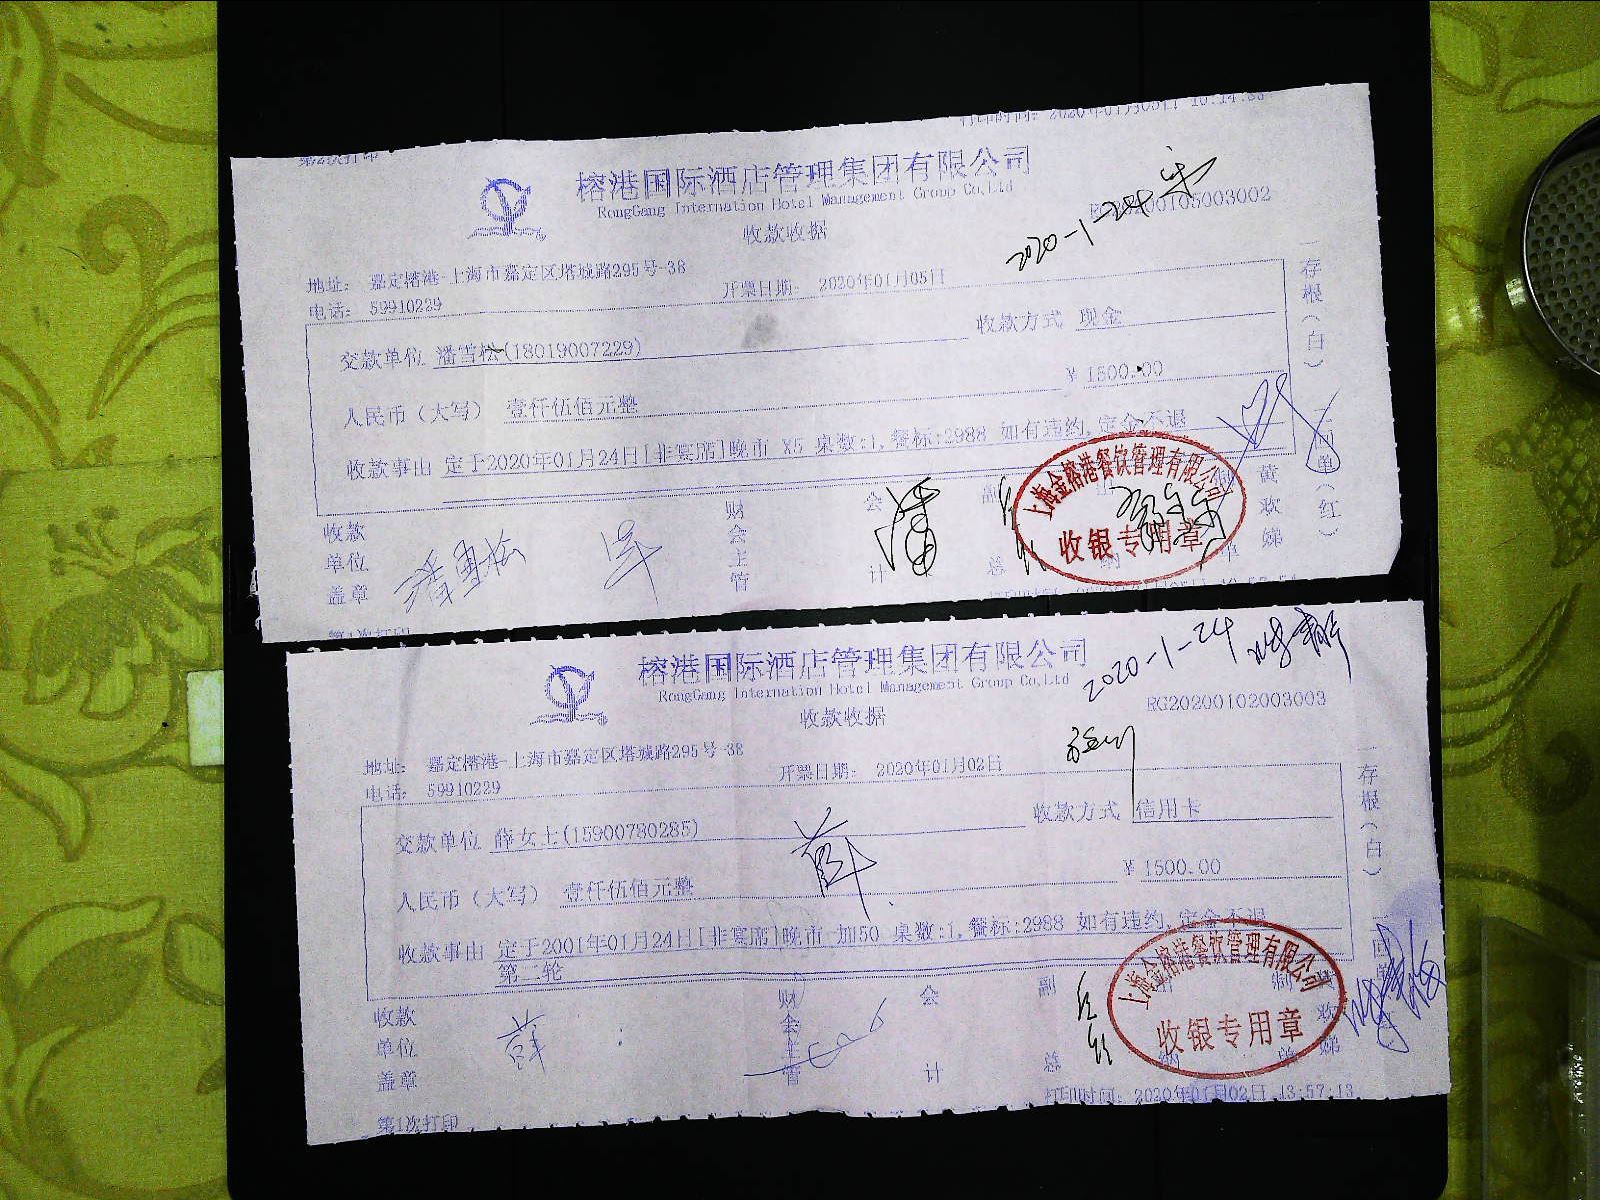 打印时间: 2020年01月05日 10:14:33
第2次打印
榕港国际酒店管理集团有限公司
RongGang Internation Hotel Management Group Co,Ltd
2020-1-24
RG20200105003002
收款收据
地址: 嘉定榕港-上海市嘉定区塔城路295号-38
电话: 59910229
开票日期: 2020年01月05日
交款单位 潘雪松(18019007229)
收款方式 现金
人民币(大写) 壹仟伍佰元整
¥ 1500.00
收款事由 定于2020年01月24日[非宴席]晚市 X5 桌数:1,餐标:2988 如有违约,定金不退
一存根(白)
(红)
收款单位盖章
财会主管
会计
副总
黄欢娣
上海金榕港餐饮管理有限公司
收银专用章
潘雪松
潘
第1次打印
榕港国际酒店管理集团有限公司
RongGang Internation Hotel Management Group Co,Ltd
2020-1-24
RG20200102003003
收款收据
地址: 嘉定榕港-上海市嘉定区塔城路295号-38
电话: 59910229
开票日期: 2020年01月02日
交款单位 薛女士(15900780285)
收款方式 信用卡
薛
人民币(大写) 壹仟伍佰元整
¥ 1500.00
收款事由 定于2001年01月24日[非宴席]晚市 加50 桌数:1,餐标:2988 如有违约,定金不退
第二轮
一存根(白)
收款单位盖章
薛
财会主管
会计
副总
上海金榕港餐饮管理有限公司
收银专用章
第1次打印
打印时间: 2020年01月02日 13:57:13